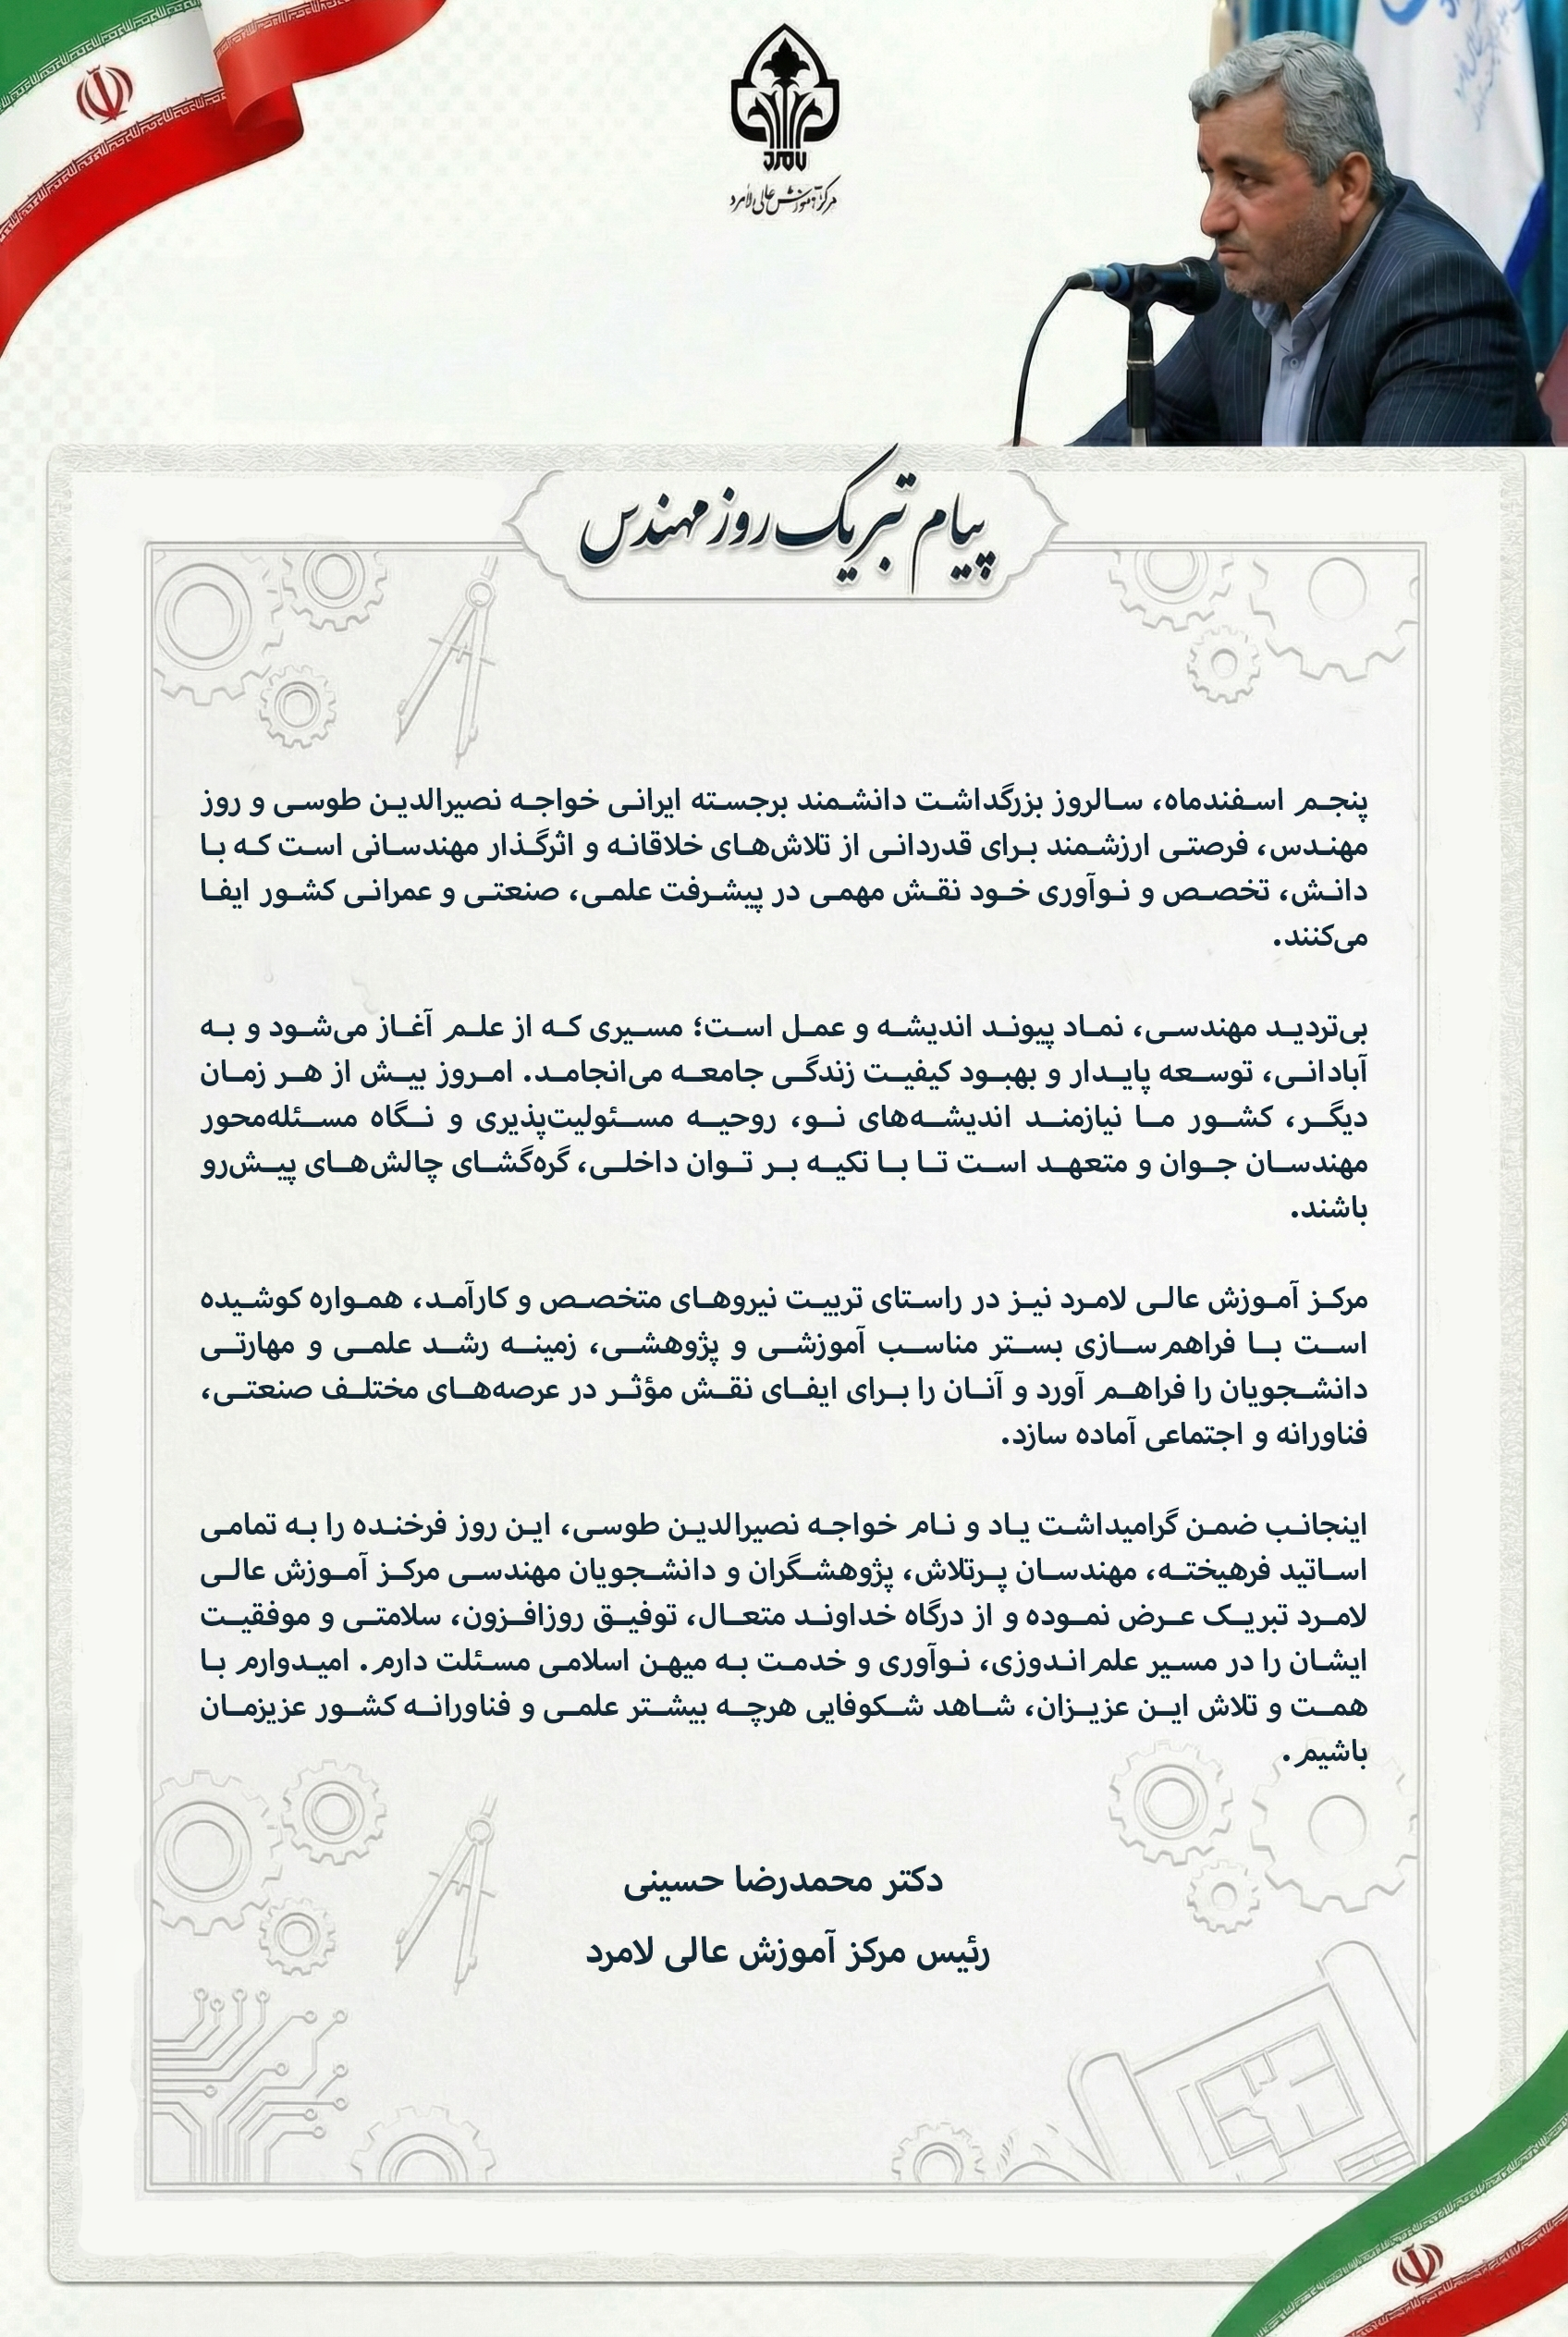 لامرد
مرکز آموزش عالی لامرد
پیام تبریک روز مهندس
پنجم اسفندماه، سالروز بزرگداشت دانشمند برجسته ایرانی خواجه نصیرالدین طوسی و روز
مهندس، فرصتی ارزشمند برای قدردانی از تلاش‌های خلاقانه و اثرگذار مهندسانی است که با
دانش، تخصص و نوآوری خود نقش مهمی در پیشرفت علمی، صنعتی و عمرانی کشور ایفا
می‌کنند.
بی‌تردید مهندسی، نماد پیوند اندیشه و عمل است؛ مسیری که از علم آغاز می‌شود و به
آبادانی، توسعه پایدار و بهبود کیفیت زندگی جامعه می‌انجامد. امروز بیش از هر زمان
دیگر، کشور ما نیازمند اندیشه‌های نو، روحیه مسئولیت‌پذیری و نگاه مسئله‌محور
مهندسان جوان و متعهد است تا با تکیه بر توان داخلی، گره‌گشای چالش‌های پیش‌رو
باشند.
مرکز آموزش عالی لامرد نیز در راستای تربیت نیروهای متخصص و کارآمد، همواره کوشیده
است با فراهم‌سازی بستر مناسب آموزشی و پژوهشی، زمینه رشد علمی و مهارتی
دانشجویان را فراهم آورد و آنان را برای ایفای نقش مؤثر در عرصه‌های مختلف صنعتی،
فناورانه و اجتماعی آماده سازد.
اینجانب ضمن گرامیداشت یاد و نام خواجه نصیرالدین طوسی، این روز فرخنده را به تمامی
اساتید فرهیخته، مهندسان پرتلاش، پژوهشگران و دانشجویان مهندسی مرکز آموزش عالی
لامرد تبریک عرض نموده و از درگاه خداوند متعال، توفیق روزافزون، سلامتی و موفقیت
ایشان را در مسیر علم‌اندوزی، نوآوری و خدمت به میهن اسلامی مسئلت دارم. امیدوارم با
همت و تلاش این عزیزان، شاهد شکوفایی هرچه بیشتر علمی و فناورانه کشور عزیزمان
باشیم.
دکتر محمدرضا حسینی
رئیس مرکز آموزش عالی لامرد